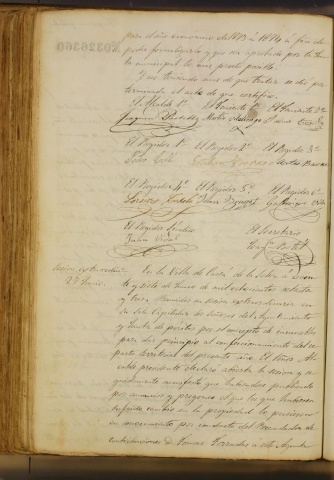 para el año economico de 1873 á 1874 á fin de
poder formalizarlo y que sea aprobado por la Jun
ta municipal lo mas pronto posible.
Y no teniendo mas de que tratar se dió por
terminada el acta de que certifico.
El Alcalde 1º El Teniente 1º El Teniente 2º
El Regidor 1º El Regidor 2º El Regidor 3º
El Regidor 4º El Regidor 5º El Regidor 6º
El Regidor Sindico El Secretario
Juan Vidal
Sesion extraordin
27 Junio.
En la Villa de de la Selva á
te y siete de Junio de mil ochocientos setenta
y tres. Reunidos en sesion extraordinaria en
su Sala Capitular los Señores del Ayuntamiento
y Junta de peritos por el concepto de inmuebles
para dar principio al confeccionamiento del re
parto territorial del presente año. El Señor Al
calde presidente declaró abierta la sesion y se
guidamente manifestó que habiendose publicado
por anuncios y pregones el que los que hubiesen
sufrido cambio en la propiedad lo pusiesen
en conocimiento por conducto del Recaudador de
contribuciones á este Ayunta